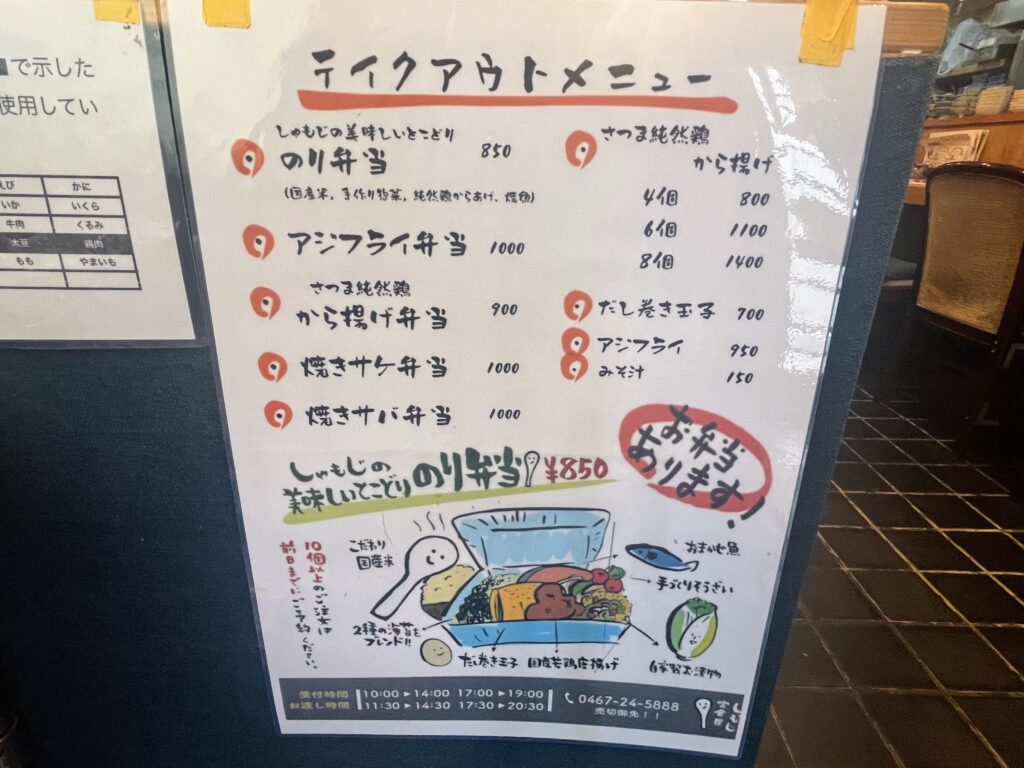 で示した
使用してい
えび かに
いか いくら
牛肉 くるみ
大豆 鶏肉
もも やまいも
テイクアウトメニュー
しゃもじの美味しいとこどり
のり弁当 850
(国産米, 手作り惣菜, 純然鶏からあげ、焼魚)
アジフライ弁当 1000
さつま純然鶏
から揚げ弁当 900
焼きサケ弁当 1000
焼きサバ弁当 1000
さつま純然鶏
から揚げ
4個 800
6個 1100
8個 1400
だし巻き玉子 700
アジフライ 950
みそ汁 150
お弁当
あります!
しゃもじの
美味しいとこどり のり弁当 ¥850
10個以上のご注文は
前日までにご予約ください。
こだわり
国産米
2種の海苔を
ブレンド!!
だし巻き玉子
国産若鶏唐揚げ
おまかせ魚
手づくりそうざい
自家製お漬物
受付時間 10:00▶14:00 17:00▶19:00
お渡し時間 11:30▶14:30 17:30▶20:30
0467-24-5888
売切御免!!
しゃもじ